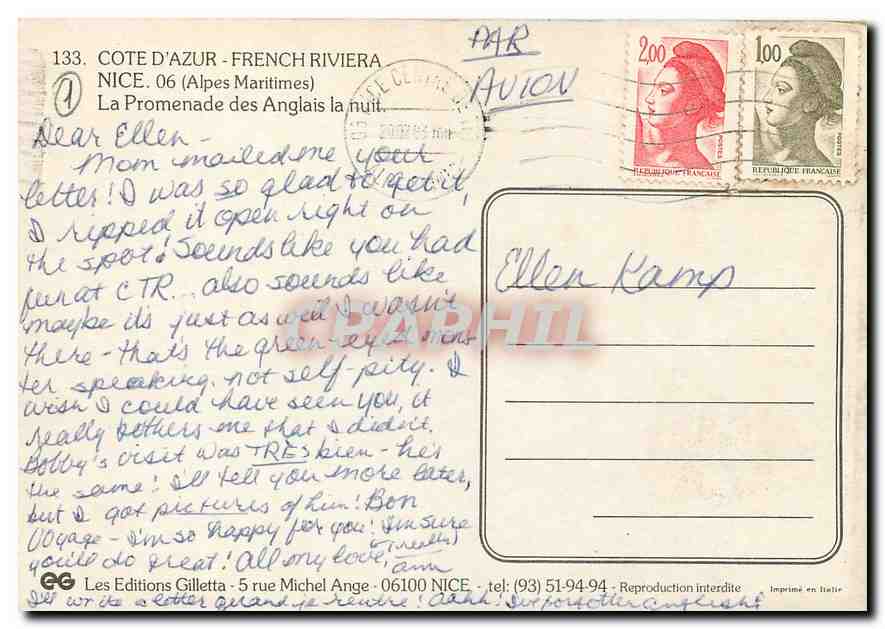 133. COTE D'AZUR - FRENCH RIVIERA
NICE. 06 (Alpes Maritimes)
La Promenade des Anglais la nuit.
1
PAR
AVION
2,00
1,00
POSTES
POSTES
REPUBLIQUE FRANÇAISE
REPUBLIQUE FRANÇAISE
NICE CENTRE
Dear Ellen -
Mom mailed me your
letter! I was so glad to get it,
I ripped it open right on
the spot! Sounds like you had
fun at CTR... also sounds like
maybe it's just as well I wasn't
there - that's the green-eyed mons-
ter speaking, not self-pity. I
wish I could have seen you, it
really bothers me that I didn't.
Bobby's visit was TRES bien - he's
the same! I'll tell you more later,
but I got pictures of him! Bon
Voyage - I'm so happy for you! I'm sure
you'll do great! (really) All my love, Ann
Ellen Kamp
CPAPHIL
EG Les Editions Gilletta - 5 rue Michel Ange - 06100 NICE - tel: (93) 51-94-94 - Reproduction interdite Imprimé en Italie
I'll write a letter quand je rentre! Aahh! I've forgotten english!